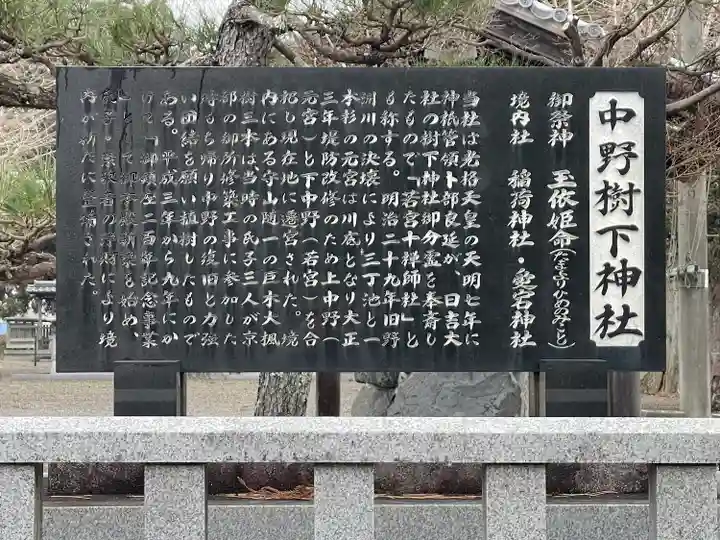 中野樹下神社
御祭神　玉依姫命(たまよりひめのみこと)
境内社　稲荷神社・愛宕神社
当社は光格天皇の天明七年に
神祇管領卜部良延が、日吉大
社の樹下神社御分霊を奉斎し
たもので「若宮十禅師社」と
も称する。明治二十九年旧野
洲川の決壊により三丁池と一
本杉の元宮は川底となり大正
三年堤防改修のため上中野(
元宮)と下中野(若宮)を合
祀し現在地に遷宮された。境
内にある守山随一の巨木大楓
樹三本は当時の氏子三人が京
都の御所修築工事に参加した
時もち帰り中野の復旧と力強
い団結を願い植樹したもので
ある。平成三年から九年にか
けて「御鎮座二百年記念事業
として御社殿新築を始め、
氏子・崇敬者の寄附により境
内が新たに整備された。